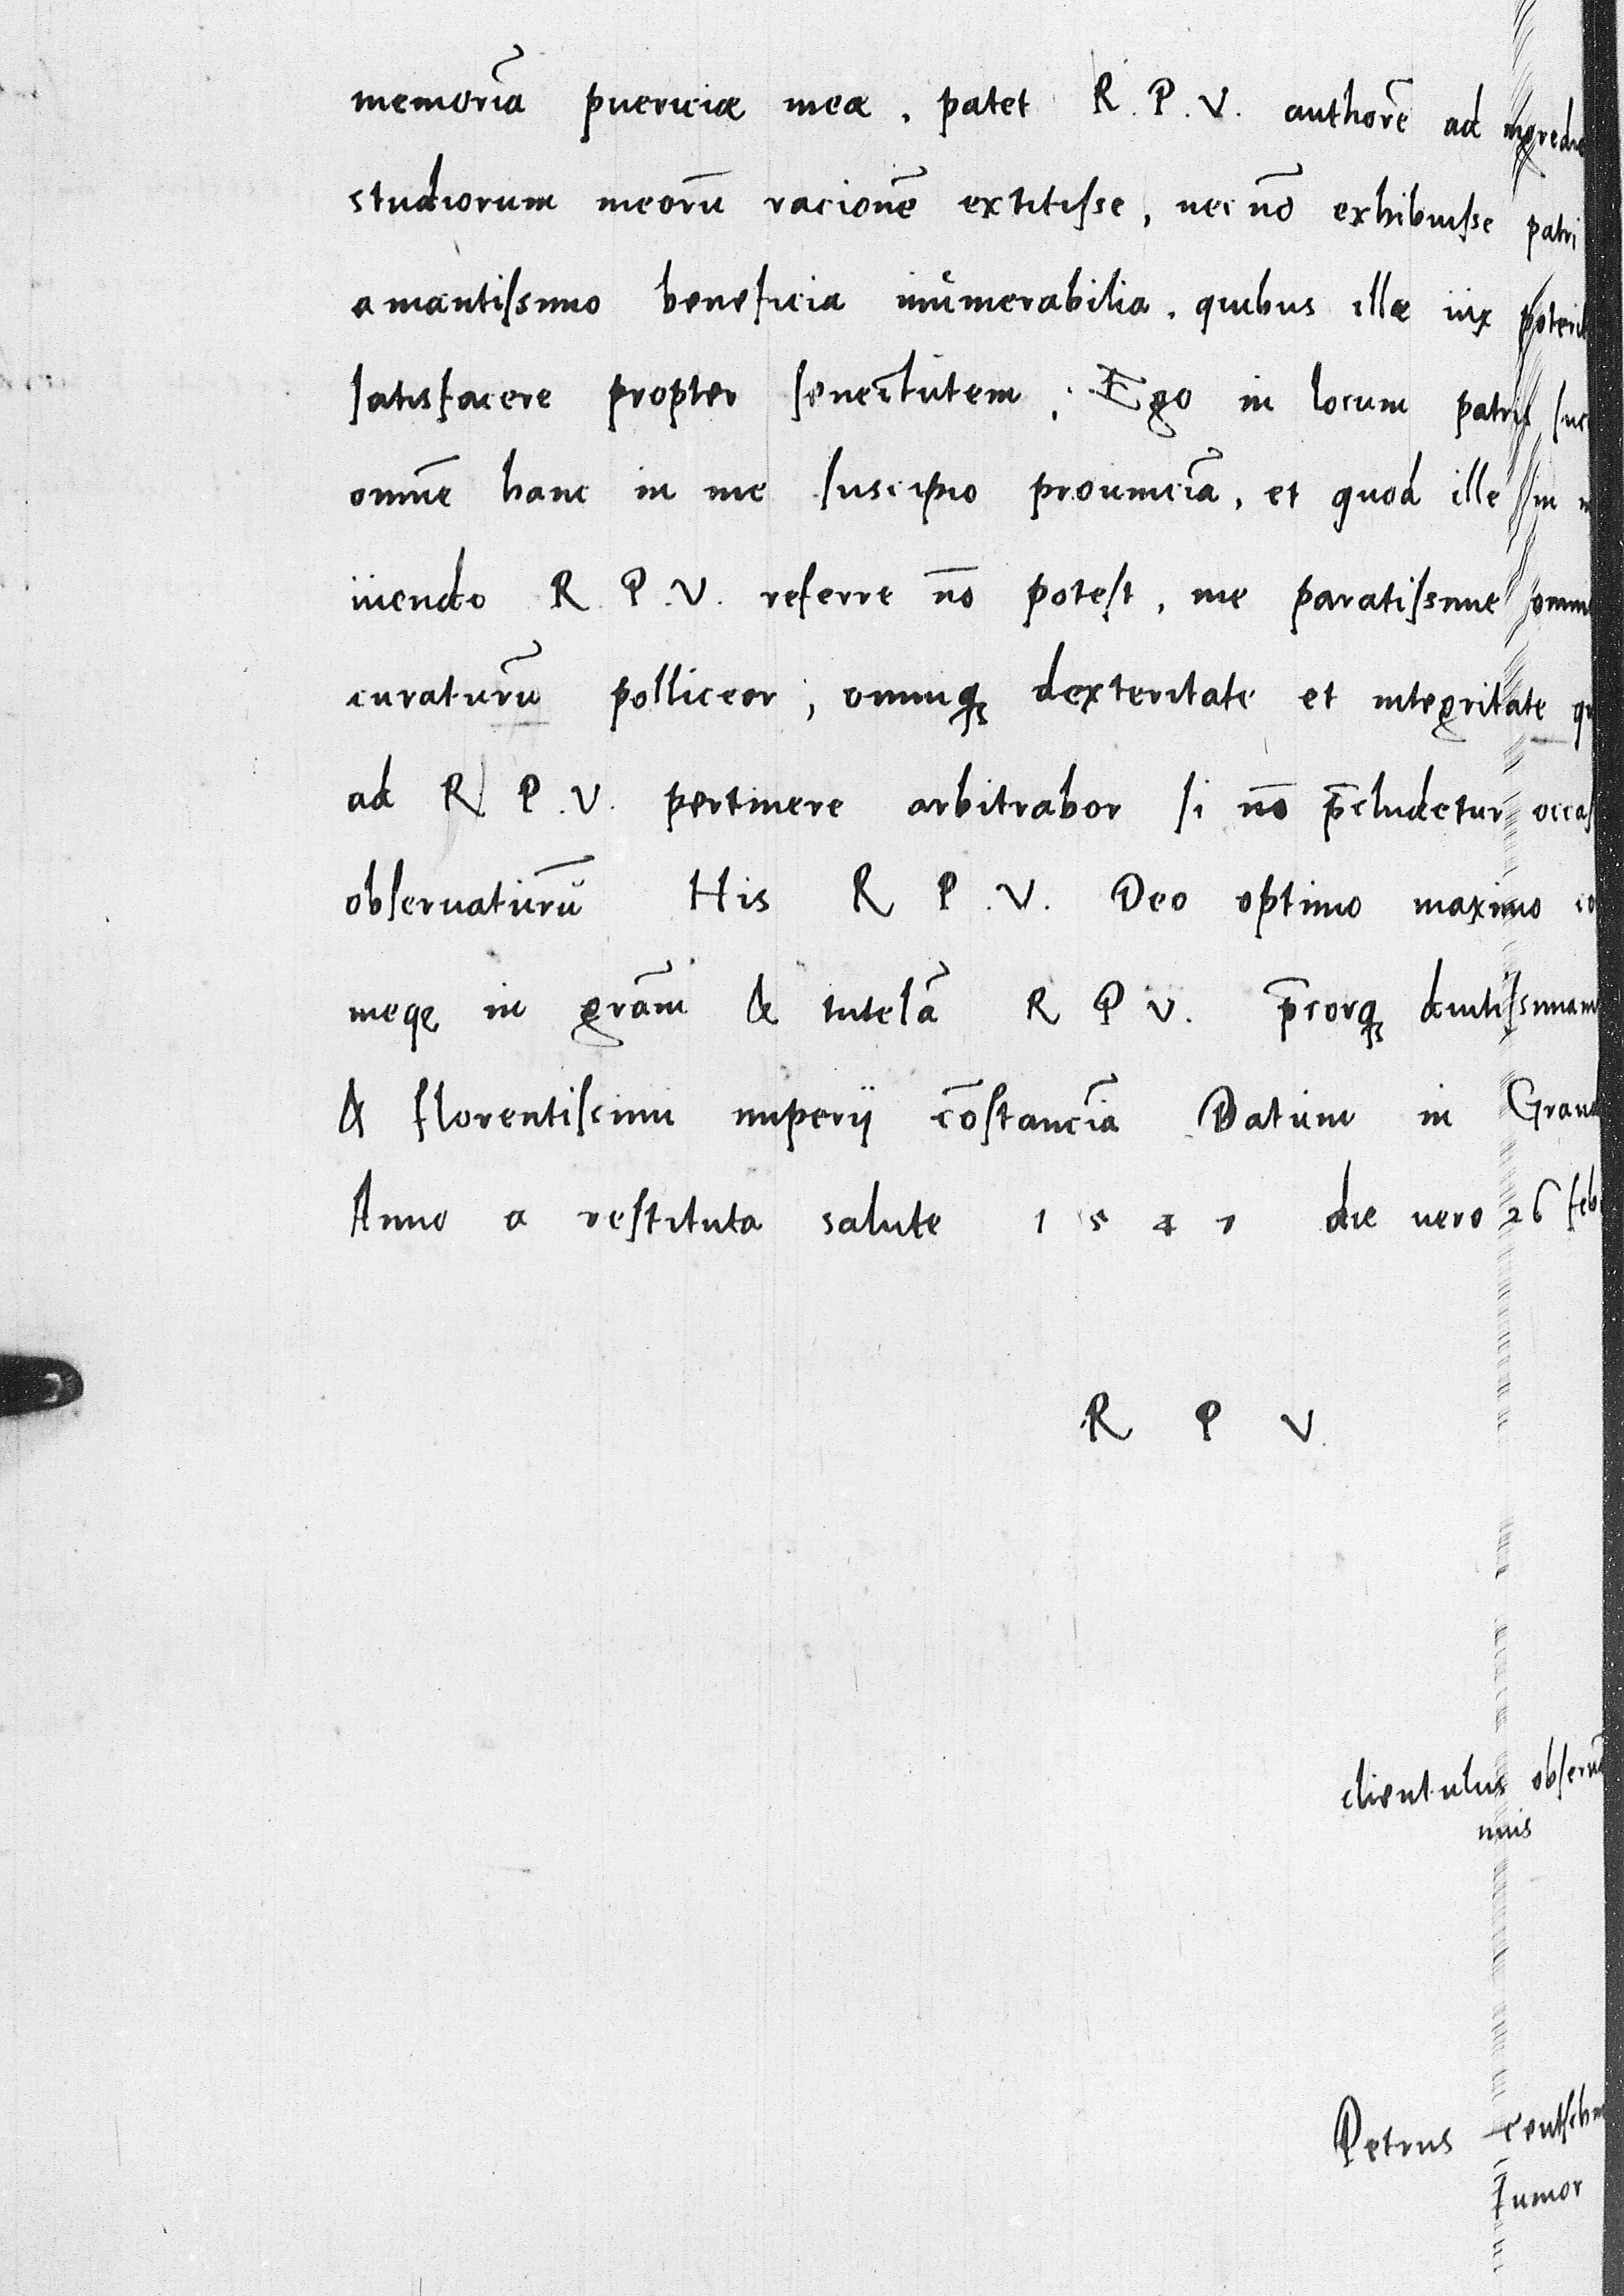 memoriā puericiæ meæ, patet R. P. V. authorē ad ingredie
studiorum meorū racionē extitisse, nec nō exhibuisse patri
amantissimo beneficia iñumerabilia, quibus ille uix poterit
satisfacere propter senectutem, Ego in locum patris suc
omnē hanc in me suscipio prouinciā, et quod ille in
uiendo R. P. V. referre nō potest, me paratissime omni
curaturū polliceor, omniqꝫ dexteritate et integritate qu
ad R P. V. pertinere arbitrabor si nō p̄cludetur occas
obseruaturū His R P. V. Deo optimo maximo co
meqꝫ in grām & tutelā R P V. p̄corqꝫ diutissimam
& florentissimi imperij cōstanciā Datum in Grau
Anno a restituta salute 1541 die uero 26 feb
R P V.
clientulus obserua
mus
Petrus
Iunior